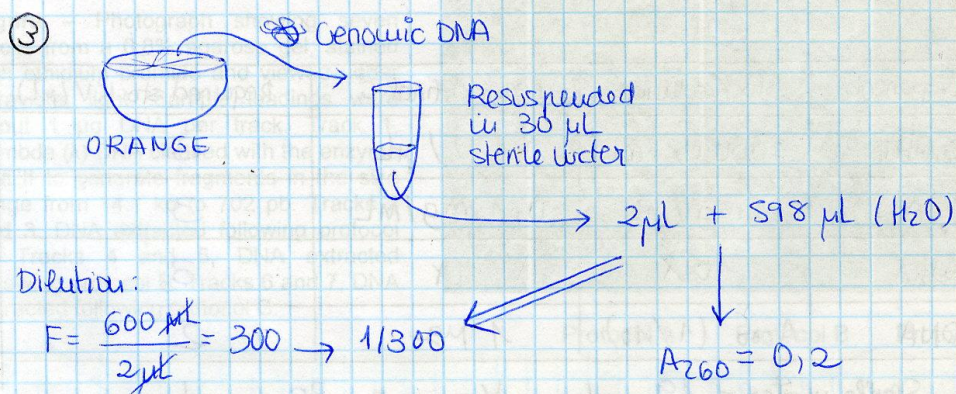 ③ Genomic DNA
ORANGE
Resuspended
in 30 µL
sterile water
2µL + 598 µL (H₂O)
Dilution:
F = 600 µL / 2 µL = 300 → 1/300
A₂₆₀ = 0,2